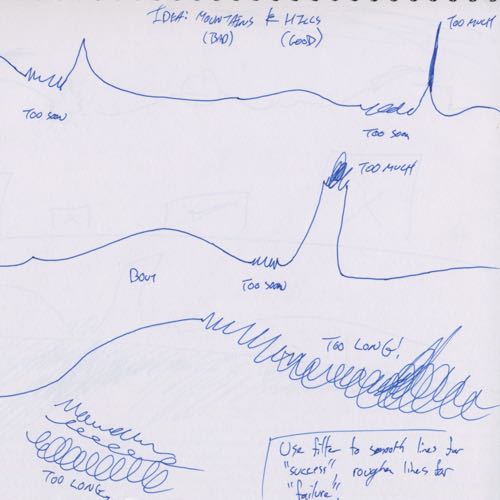 IDEA: MOUNTAINS & HILLS
(BAD) (GOOD)
TOO MUCH
TOO SOON
TOO SOON
TOO MUCH
BOUT
TOO SOON
TOO LONG!
TOO LONG
Use filter to smooth lines for
"success", rougher lines for
"failure".